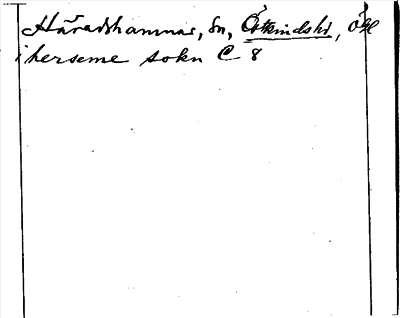 Häradshammar, sn, Östkinds hd, Ögl
i herseme sokn C 8